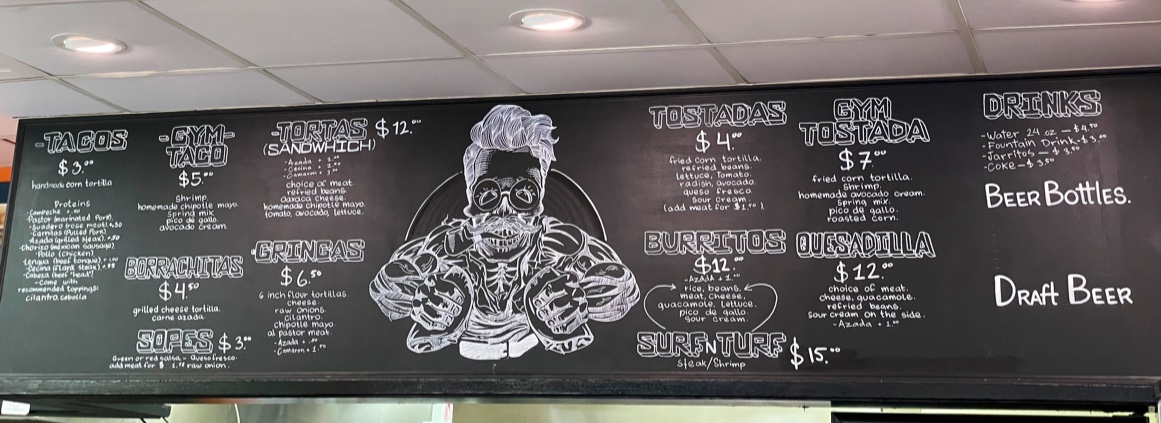 -TACOS
$3.00
handmade corn tortilla
Proteins
-Campeche +.50
-Pastor (marinated Pork)
-Suadero (rose meat) +.50
-Carnitas (Pulled Pork)
-Azada (grilled steak) +.50
-Chorizo (Mexican Sausage)
-Pollo (chicken)
-Lengua (beef tongue) +1.00
-Cecina (Flank steak) +.99
-Cabeza (beef "head")
-Come with
recommended toppings:
cilantro, cebolla
-GYM-
TACO
$5.00
Shrimp.
homemade chipotle mayo.
Spring mix
pico de gallo.
avocado cream.
BORRACHITAS
$4.50
grilled cheese tortilla.
carne azada.
SOPES $3.00
Green or red salsa - Queso fresco.
add meat for $ 1.00 raw onion.
-TORTAS $12.00
(SANDWHICH)
-Azada +
-Cecina +
-Camaron +
choice of meat.
refried beans.
Oaxaca cheese.
homemade chipotle mayo.
tomato, avocado, lettuce.
GRINGAS
$6.50
6 inch flour tortillas.
cheese.
raw onions.
cilantro.
chipotle mayo
al pastor meat.
-Azada +
-Camaron +
TOSTADAS
$4.00
fried corn tortilla.
refried beans.
lettuce, Tomato.
radish, avocado.
queso fresca.
Sour cream.
(add meat for $1.00)
BURRITOS
$12.00
-AZADA +
rice, beans.
meat, cheese,
guacamole, lettuce.
pico de gallo.
Sour cream.
SURF N TURF $15.00
Steak/Shrimp
GYM
TOSTADA
$7.00
fried corn tortilla.
Shrimp.
homemade avocado cream.
Spring mix.
pico de gallo.
roasted corn.
QUESADILLA
$12.00
choice of meat.
cheese, guacamole.
refried beans.
Sour cream on the side.
-Azada +
DRINKS
-Water 24 oz - $4.50
-Fountain Drink - $3.00
-Jarritos - $3.00
-Coke - $3.50
BEER BOTTLES.
DRAFT BEER